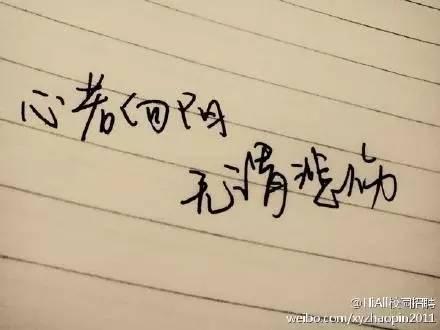 心若向阳
无谓悲伤
@HiAll校园招聘
weibo.com/xyzhaopin2011